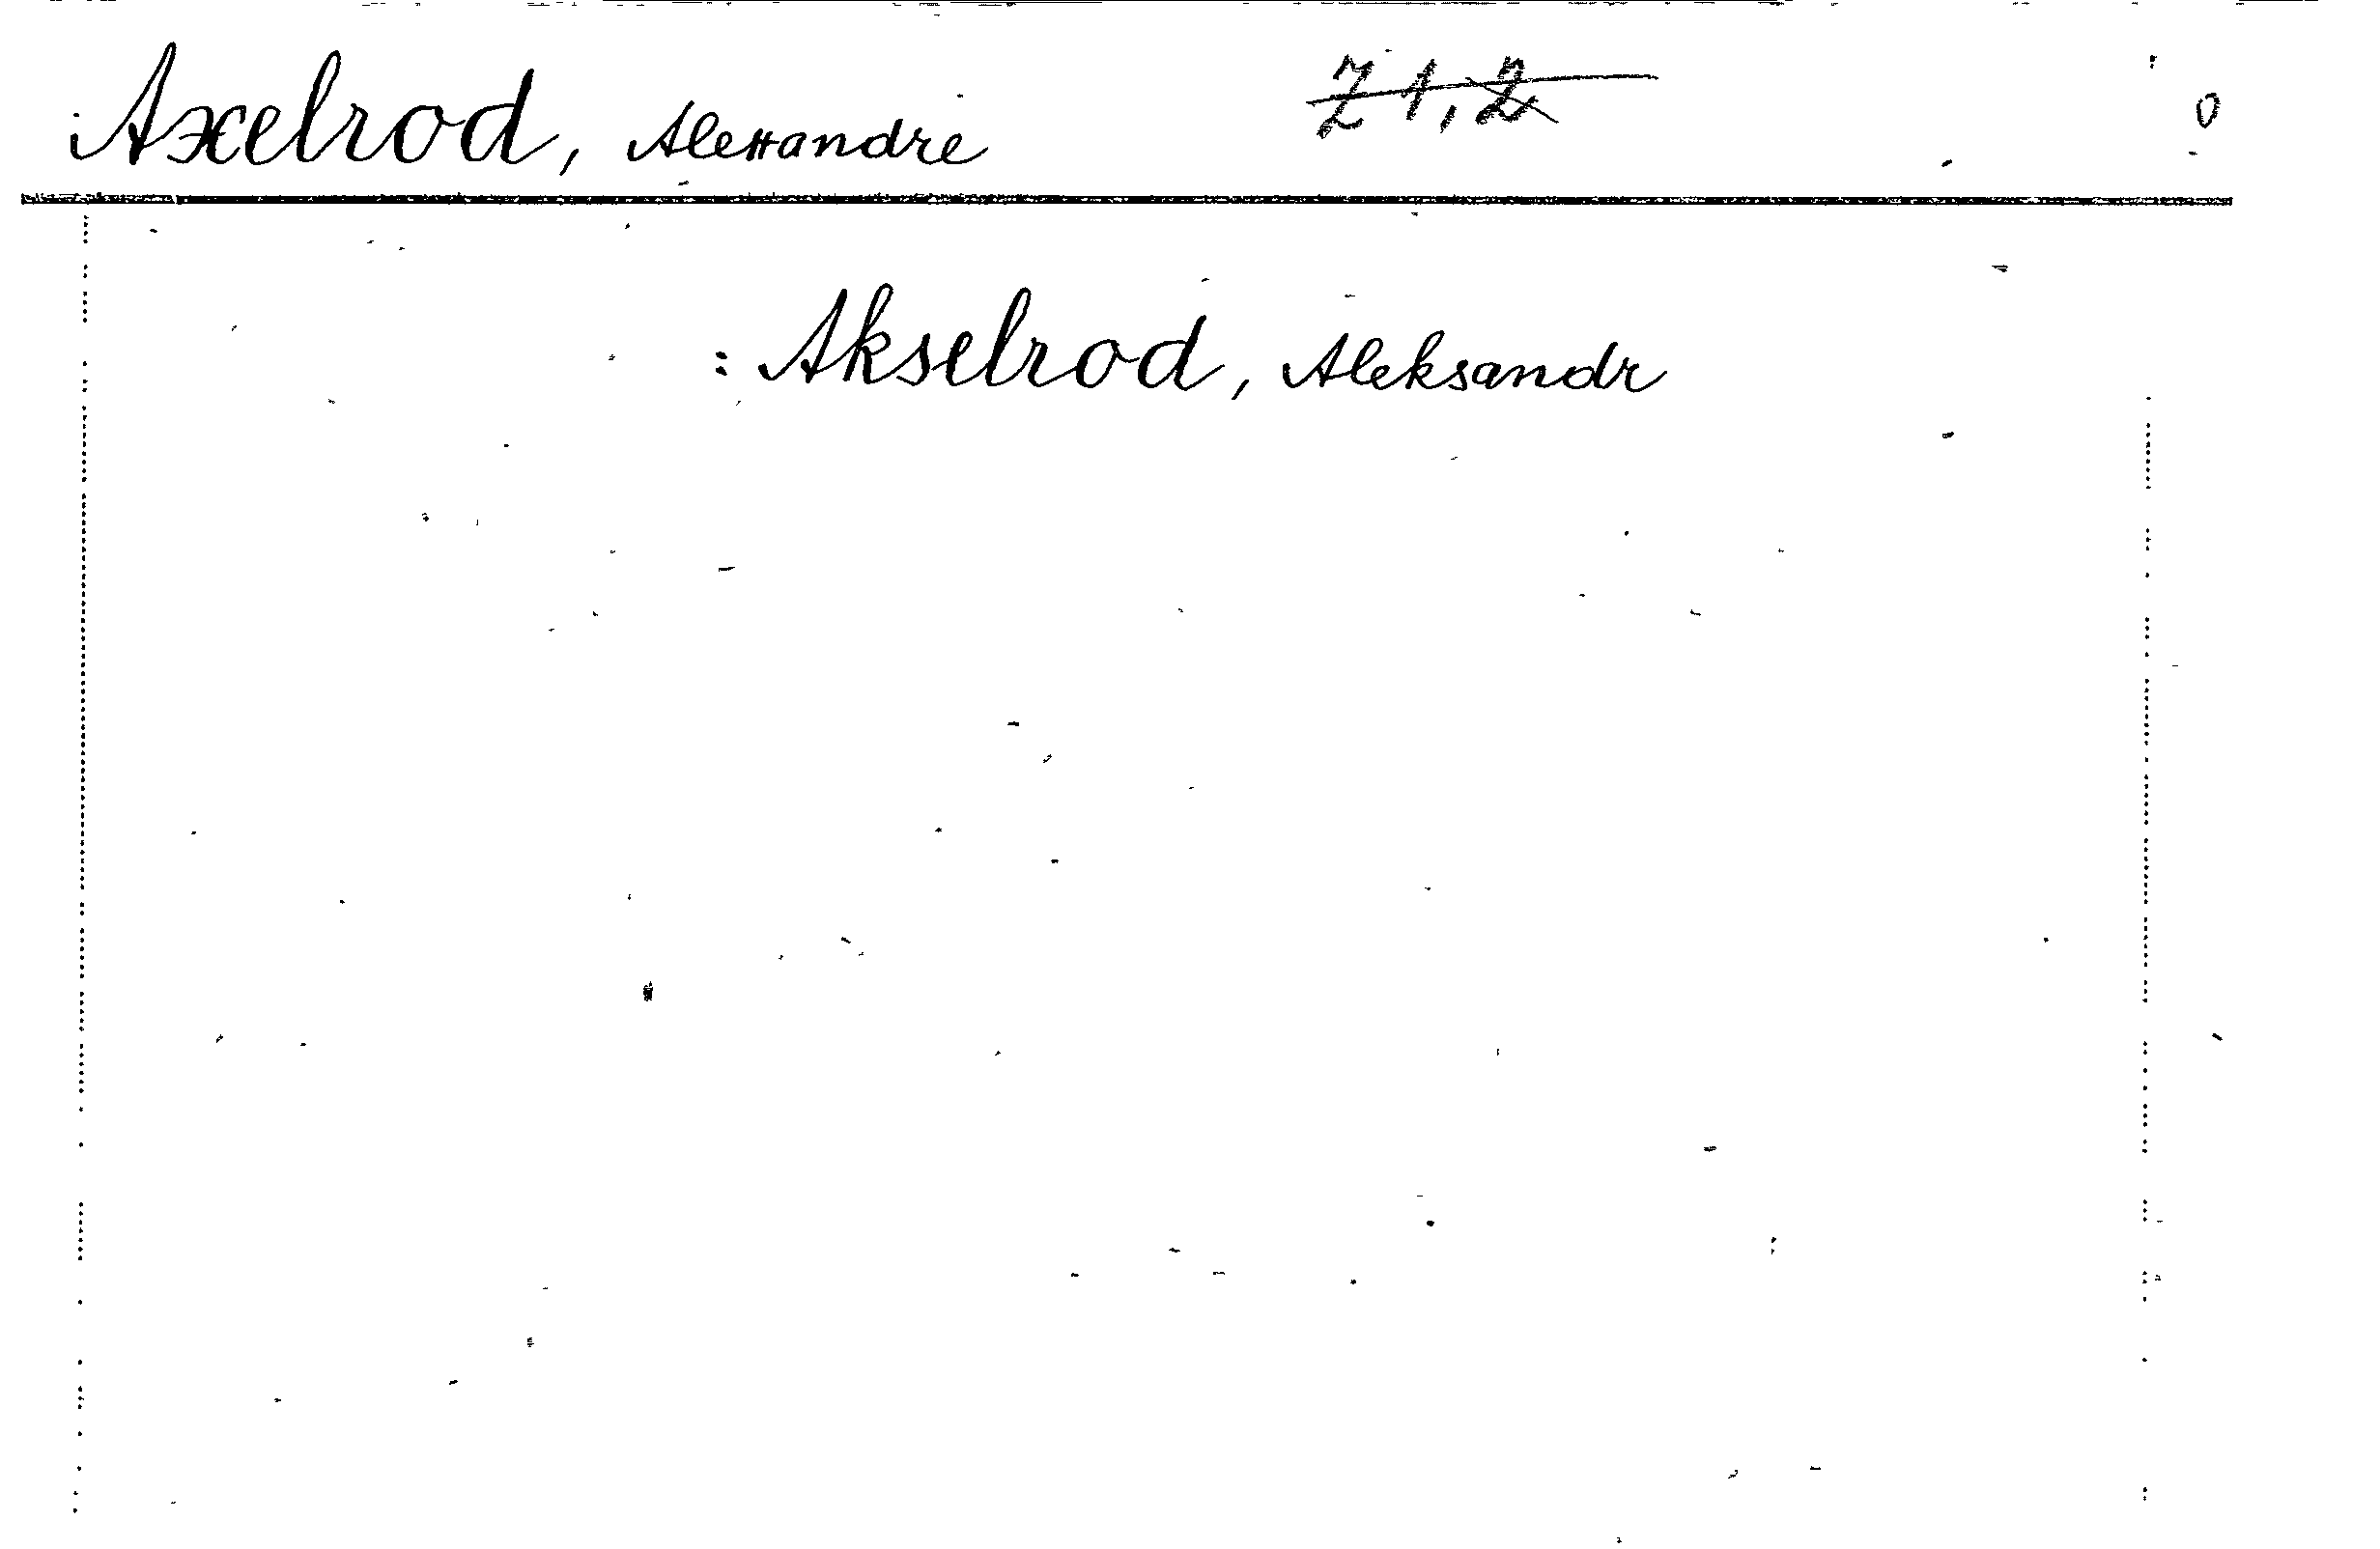 Axelrod, Alexandre Z 1, 2 0
: Akselrod, Aleksandr